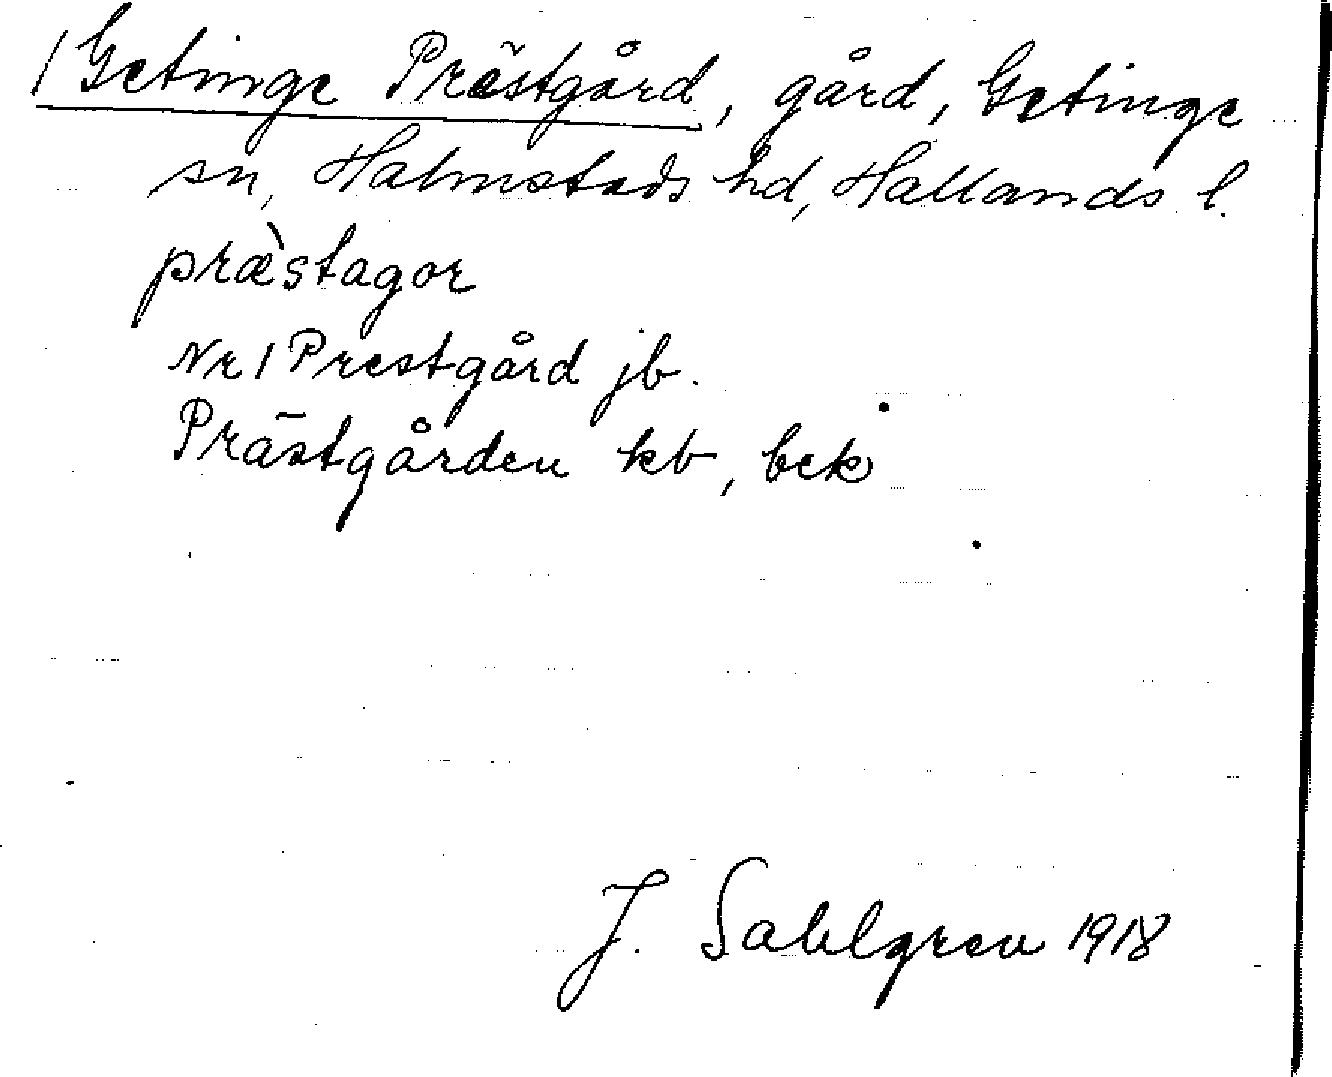 /Getinge Prästgård, gård, Getinge
sn, Halmstads hd, Hallands l.
præ̀stagor
Nr 1 Prestgård jb.
Prästgården kb, bek
J. Sahlgren 1918